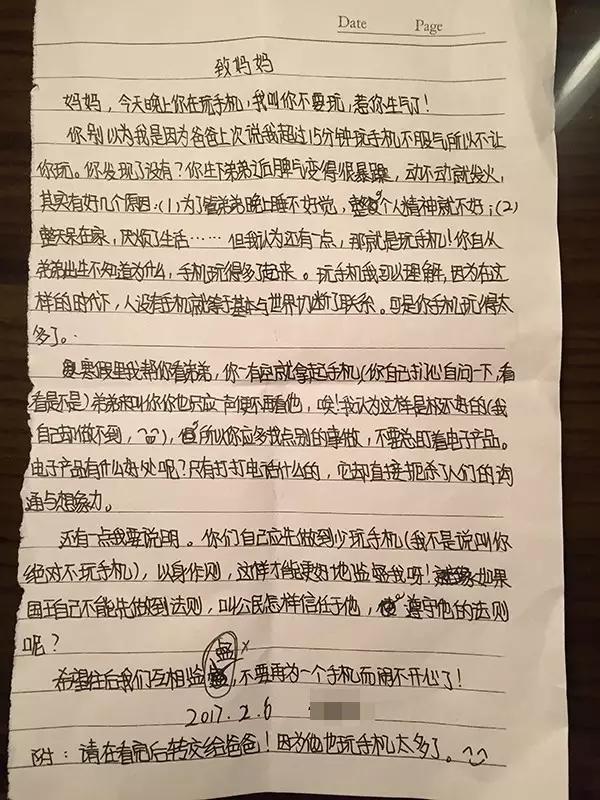 Date Page
致妈妈
妈妈，今天晚上你在玩手机，我叫你不要玩，惹你生气了！
你别以为我是因为爸爸上次说我超过15分钟玩手机不服气所以不让
你玩。你发现了没有？你生下弟弟近后脾气变得很暴躁，动不动就发火，
其实有好几个原因：(1)为了管弟弟晚上睡不好觉，整个人精神就不好；(2)
整天呆在家，厌烦了生活……但我认为还有一点，那就是玩手机！你自从
弟弟出生不知道为什么，手机玩得多了起来。玩手机我可以理解，因为在这
样的时代下，人没有手机就等于基本与世界切断了联系。可是你手机玩得太
多了。
寒假里我帮你看弟弟，你一有空就拿起手机(你自己扪心自问一下，看
看是不是)弟弟来叫你你也只应一声便不再看他，唉！我认为这样是极不好的(我
自己却做不到，)，所以你应多找点别的事做，不要总盯着电子产品。
电子产品有什么好处呢？只有打打电话什么的，它却直接扼杀了人们的沟
通与想象力。
还有一点我要说明。你们自己应先做到少玩手机(我不是说叫你
绝对不玩手机)，以身作则，这样才能更好地监督我呀！如果
国王自己不能先做到法则，叫公民怎样信任于他，遵守他的法则
呢？
希望往后我们互相监督，不要再为一个手机而闹不开心了！
2017.2.6
附：请在看完后转交给爸爸！因为他也玩手机太多了。